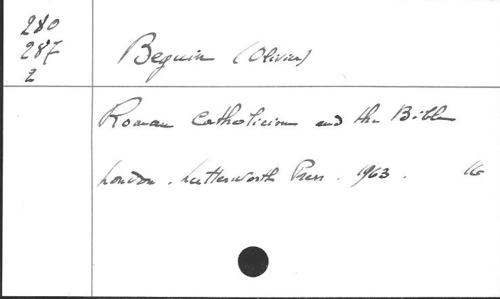 280
287
2
Beguin (Olivier)
Roman Catholicism and the Bible
London. Lutterworth Press. 1963. 16